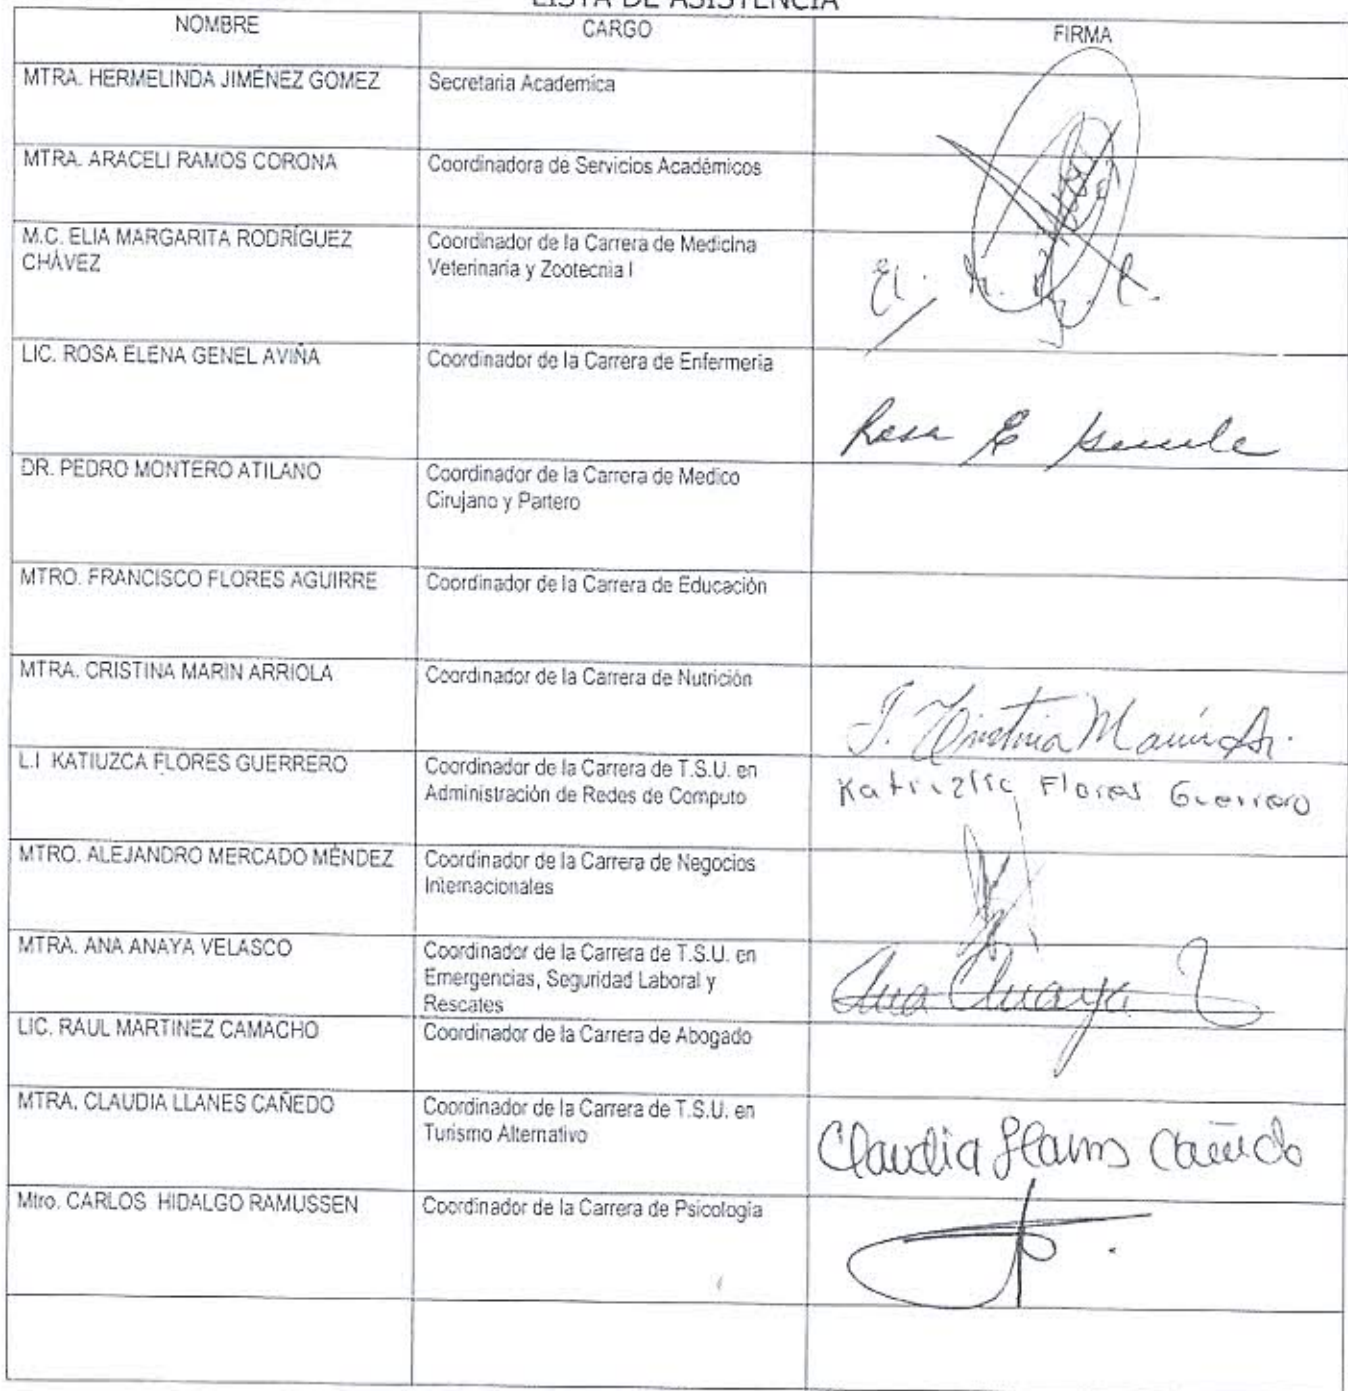 LISTA DE ASISTENCIA
NOMBRE CARGO FIRMA
MTRA. HERMELINDA JIMÉNEZ GOMEZ Secretaria Academica
MTRA. ARACELI RAMOS CORONA Coordinadora de Servicios Académicos
M.C. ELIA MARGARITA RODRÍGUEZ Coordinador de la Carrera de Medicina
CHÁVEZ Veterinaria y Zootecnia I
LIC. ROSA ELENA GENEL AVIÑA Coordinador de la Carrera de Enfermeria
Rosa E
DR. PEDRO MONTERO ATILANO Coordinador de la Carrera de Medico
Cirujano y Partero
MTRO. FRANCISCO FLORES AGUIRRE Coordinador de la Carrera de Educación
MTRA. CRISTINA MARIN ARRIOLA Coordinador de la Carrera de Nutrición
J. Cristina Marín Ar.
L.I KATIUZCA FLORES GUERRERO Coordinador de la Carrera de T.S.U. en
Administración de Redes de Computo Flores Guerrero
MTRO. ALEJANDRO MERCADO MÉNDEZ Coordinador de la Carrera de Negocios
Internacionales
MTRA. ANA ANAYA VELASCO Coordinador de la Carrera de T.S.U. en
Emergencias, Seguridad Laboral y Ana Anaya
Rescates
LIC. RAUL MARTINEZ CAMACHO Coordinador de la Carrera de Abogado
MTRA. CLAUDIA LLANES CAÑEDO Coordinador de la Carrera de T.S.U. en
Turismo Alternativo Claudia Llanes Cañedo
Mtro. CARLOS HIDALGO RAMUSSEN Coordinador de la Carrera de Psicología